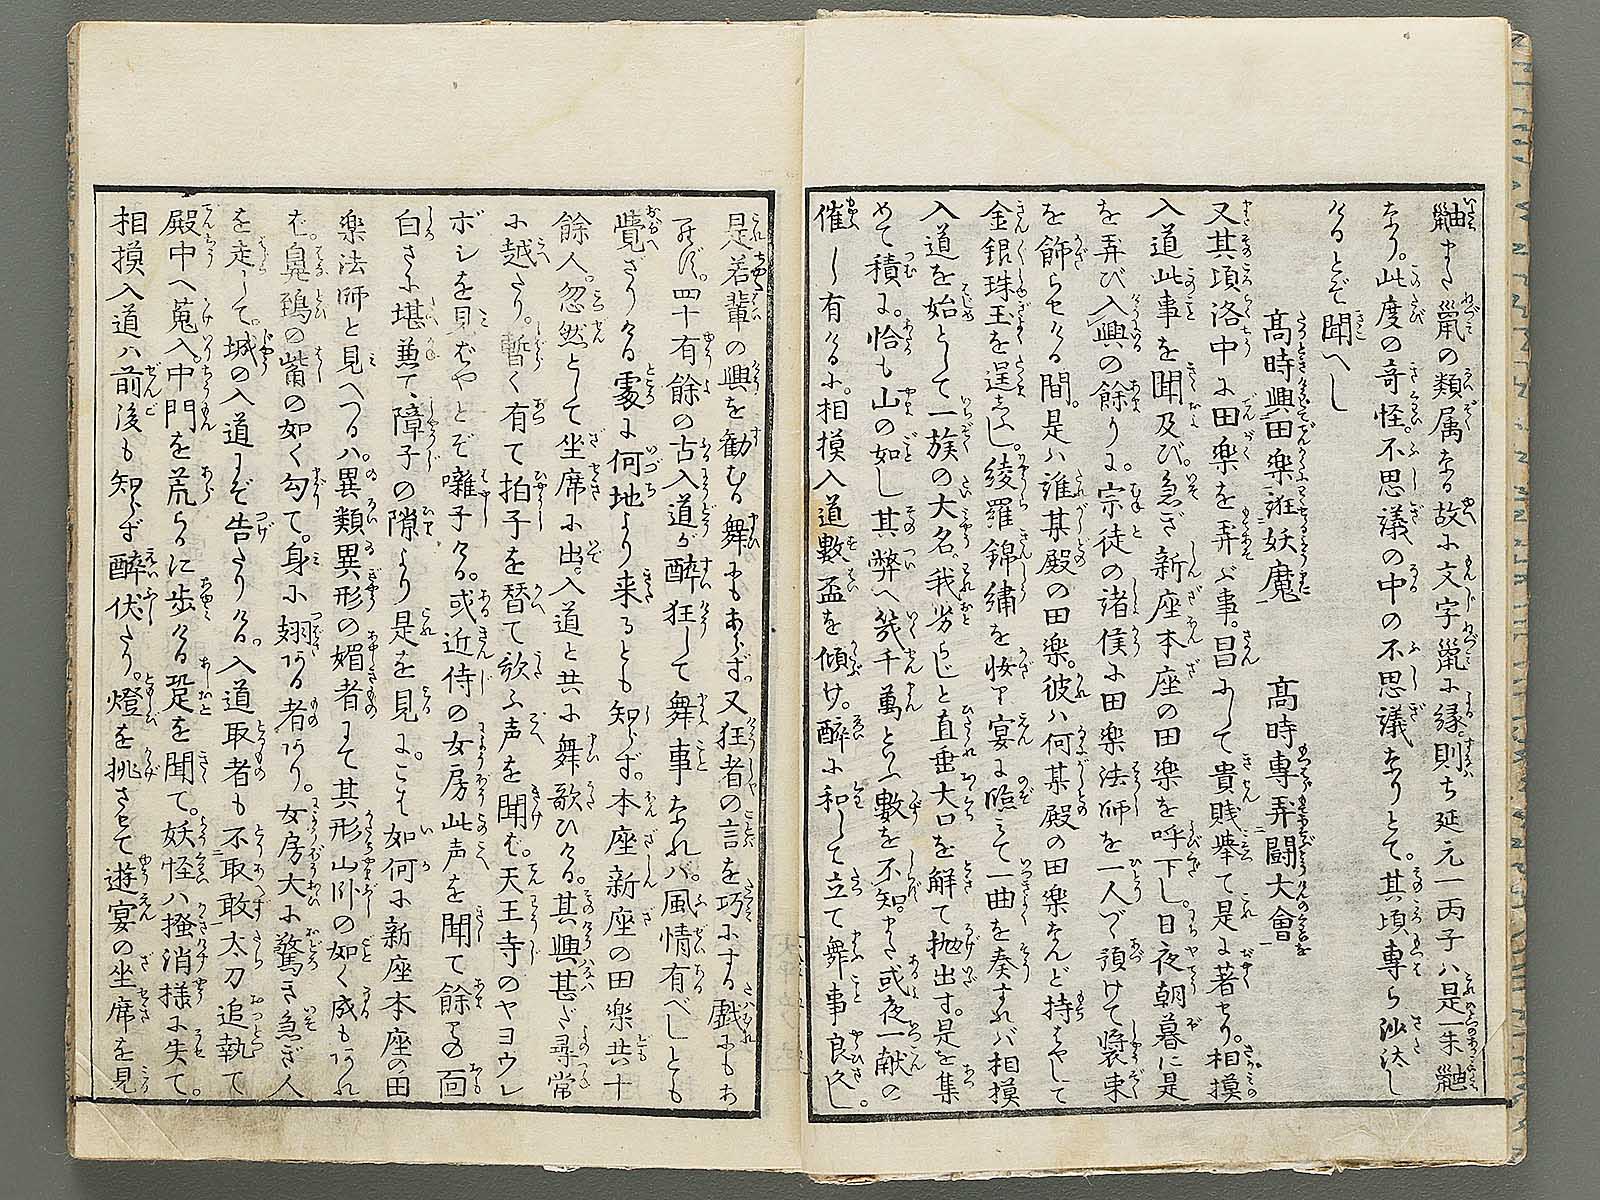 鼬また鼡の類属なる故に文字鼡に縁。則ち延元一丙子ハ是一朱鼬
なり。此度の奇怪。不思議の中の不思議なりとて。其頃専ら沙汰し
けるとぞ聞へし
高時興田楽誑妖魔 高時専弄闘犬會
又其頃洛中に田楽を弄ぶ事。昌にして貴賤挙て是に著せり。相摸
入道此事を聞及び。急ぎ新座本座の田楽を呼下し。日夜朝暮に是
を弄び入興の餘りに。宗徒の諸侯に田楽法師を一人づゝ預けて装束
を飾らせける間。是ハ誰某殿の田楽。彼ハ何某殿の田楽なんど持はやして
金銀珠玉を逞ふし。綾羅錦繡を妝り宴に臨て一曲を奏すれバ相摸
入道を始として一族の大名。我劣らじと直垂大口を解て抛出す。是を集
めて積に。恰も山の如し其弊へ幾千萬といふ數を不知。また或夜一献の
催し有けるに。相摸入道數盃を傾け。醉に和して立て舞事良久し。
是若輩の興を勧むる舞にもあらず。又狂者の言を巧にする戯にもあ
らず。四十有餘の古入道が醉狂して舞事なれバ。風情有べしとも
覺ざりける處に何地より来るとも知らず。本座新座の田楽共十
餘人。忽然として坐席に出。入道と共に舞歌ひける。其興甚だ尋常
に越たり。暫く有て拍子を替て歌ふ声を聞ば。天王寺のヤヨウレ
ボシを見ばやとぞ囃子ける。或近侍の女房此声を聞て餘りの面
白さに堪兼て、障子の隙より是を見に。こは如何に新座本座の田
楽法師と見へつるハ異類異形の媚者にて其形山卧の如く成もあれ
ば。鼻鵄の觜の如く勾て。身に翅ある者あり。女房大に驚き急ぎ人
を走して。城の入道にぞ告たりける。入道取者も不取敢太刀追執て
殿中へ蒐入。中門を荒らかに歩ける跫を聞て。妖怪ハ掻消様に失て。
相摸入道ハ前後も知らず醉伏たり。燈を挑させて遊宴の坐席を見